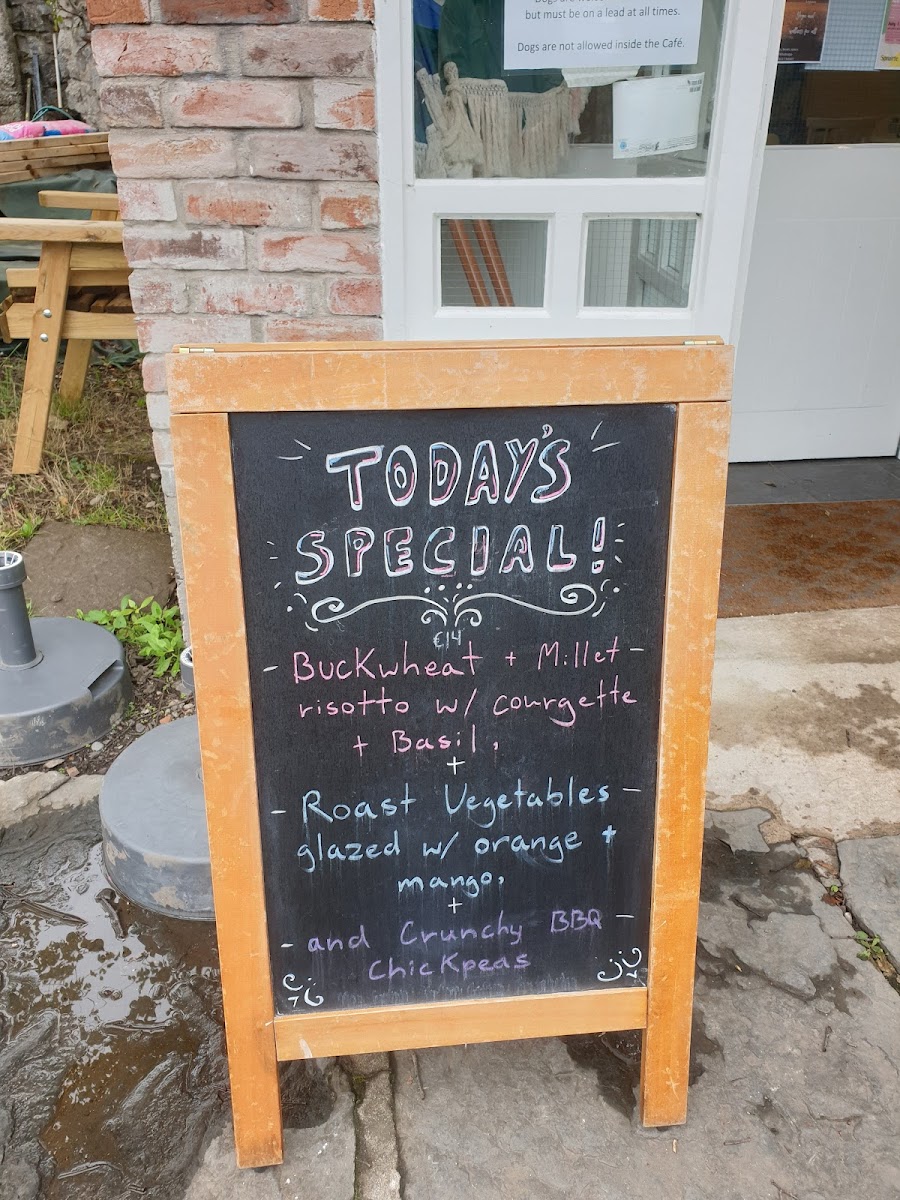 but must be on a lead at all times.
Dogs are not allowed inside the Café.
TODAY'S
SPECIAL!
€14
- Buckwheat + Millet -
risotto w/ courgette
+ Basil,
+
- Roast Vegetables -
glazed w/ orange +
mango,
+
- and Crunchy BBQ -
Chickpeas